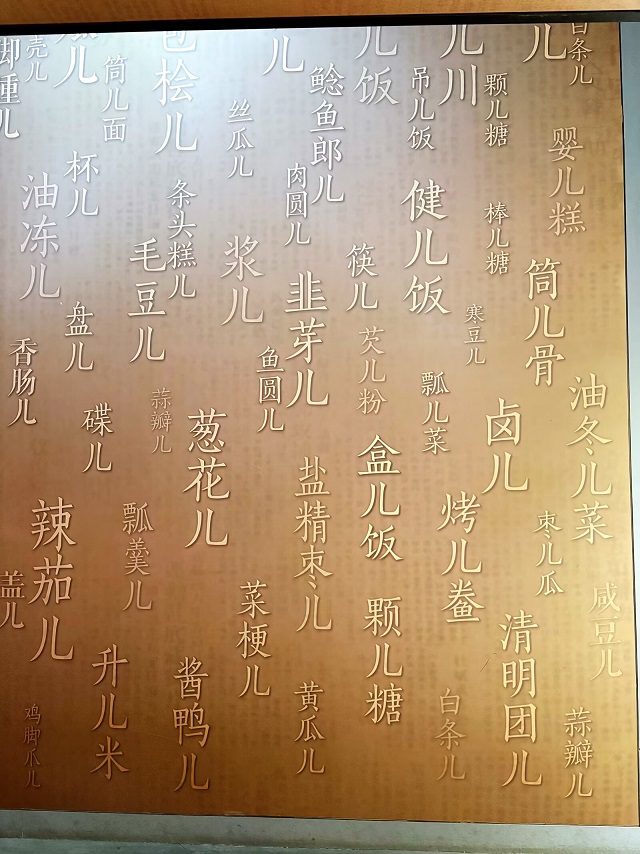 壳儿
筒儿面
桧儿
丝瓜儿
鲶鱼郎儿
儿饭
吊儿饭
儿川
颗儿糖
白条儿
婴儿糕
杯儿
油冻儿
条头糕儿
毛豆儿
浆儿
肉圆儿
韭芽儿
筷儿
健儿饭
棒儿糖
筒儿骨
寒豆儿
盘儿
香肠儿
碟儿
蒜瓣儿
葱花儿
鱼圆儿
芡儿粉
瓢儿菜
卤儿
油冬儿菜
盒儿饭
盐精枣儿
烤儿鲞
枣儿瓜
辣茄儿
瓢羹儿
盖儿
菜梗儿
颗儿糖
清明团儿
咸豆儿
升儿米
酱鸭儿
黄瓜儿
白条儿
蒜瓣儿
鸡脚爪儿